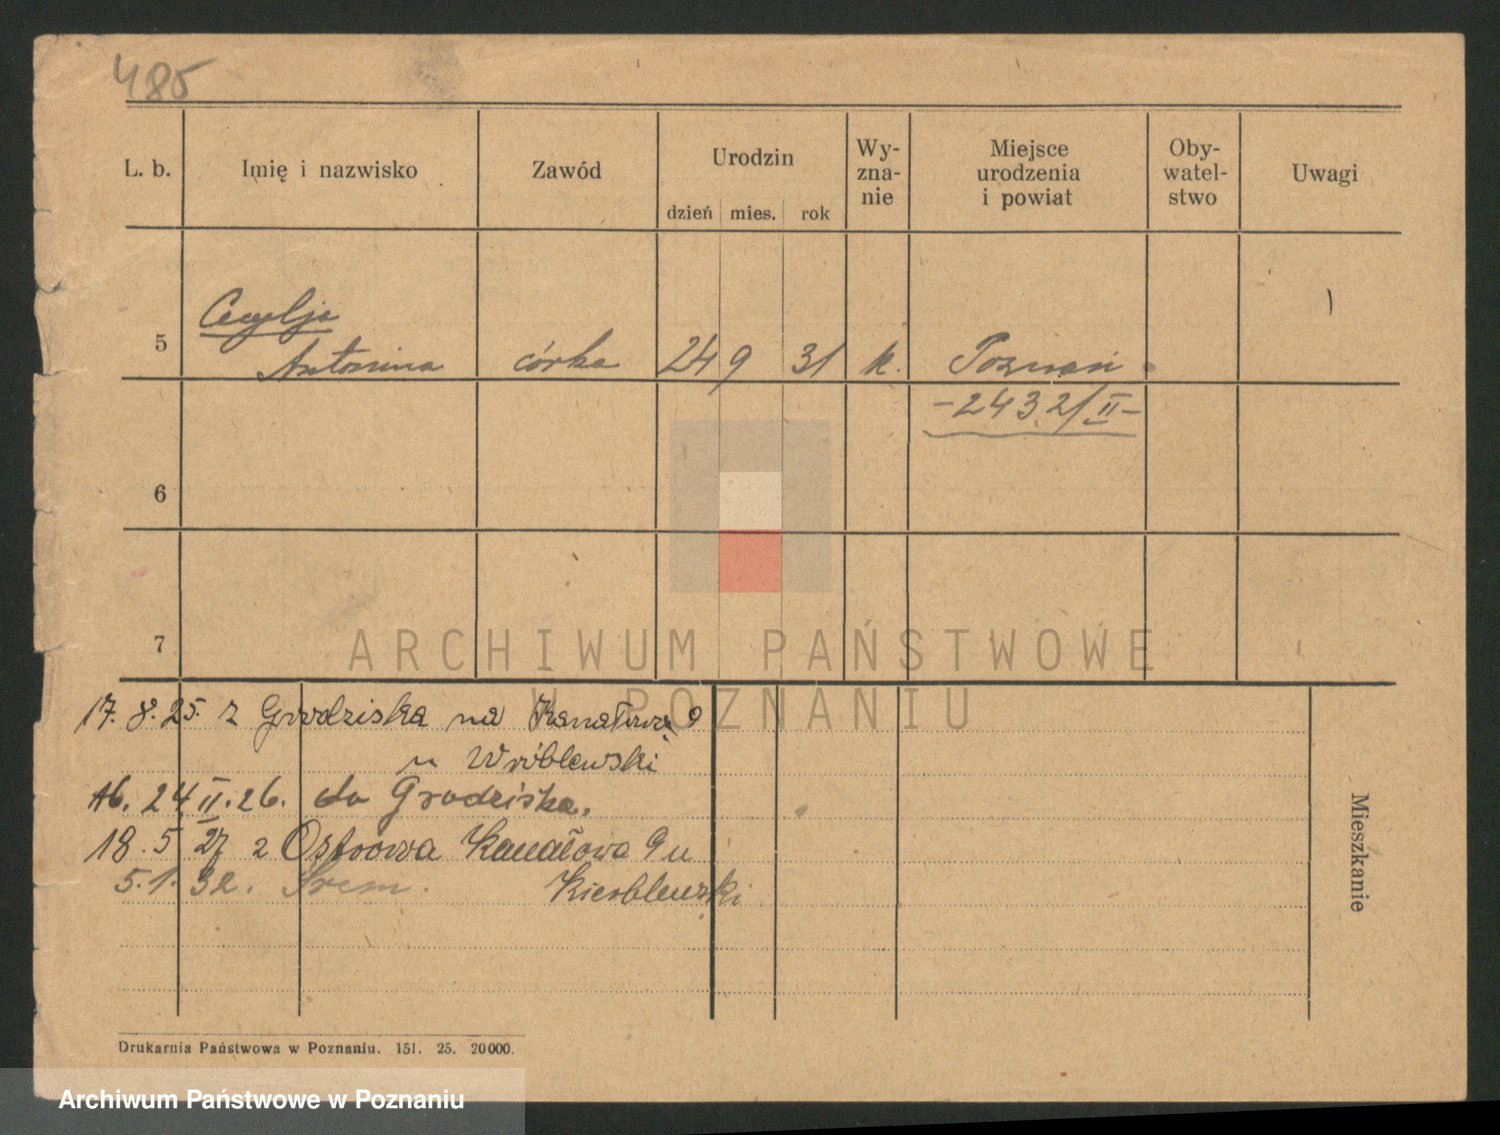 485
L. b. Imię i nazwisko Zawód Urodzin Wy- Miejsce Oby- Uwagi
zna- urodzenia watel-
nie i powiat stwo
dzień mies. rok
Cecylja
5 Antonina córka 24 9 31 k. Poznań
-2432/II-
6
7
17. 8. 25. z Grodziska na Kanałowa 9
u Wróblewski
Ab. 24 II. 26. do Grodziska.
18. 5 27 z Ostrowa Kanałowa 9 u
5. 1. 32. Śrem.
Mieszkanie
Drukarnia Państwowa w Poznaniu. 151. 25. 20000.
ARCHIWUM PAŃSTWOWE
W POZNANIU
Archiwum Państwowe w Poznaniu